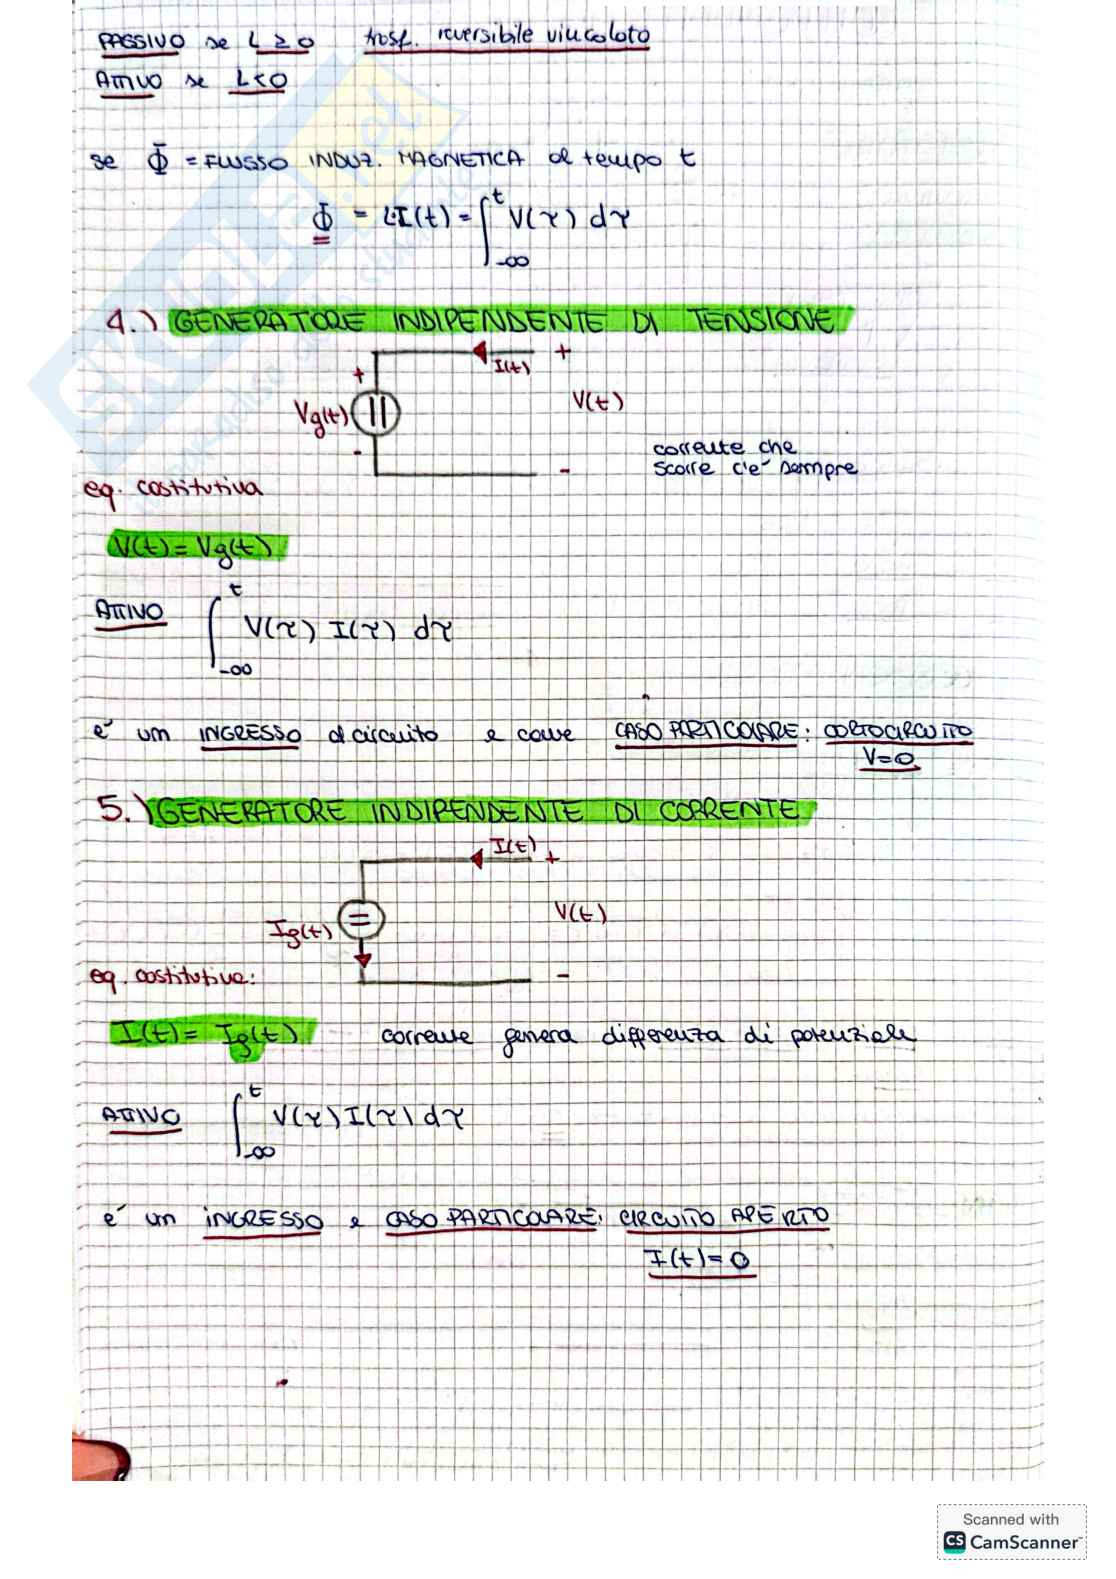 PASSIVO se L ≥ 0 trasf. reversibile vincolato
ATTIVO se L < 0
se Φ = FLUSSO INDUZ. MAGNETICA al tempo t
Φ = L·I(t) = ∫_{-∞}^{t} V(τ) dτ
4.) GENERATORE INDIPENDENTE DI TENSIONE
I(t) +
+
Vg(t) V(t)
-
-
corrente che
scorre c'è sempre
eq. costitutiva
V(t) = Vg(t)
ATTIVO ∫_{-∞}^{t} V(τ) I(τ) dτ
è un INGRESSO al circuito e come CASO PARTICOLARE: CORTOCIRCUITO
V=0
5.) GENERATORE INDIPENDENTE DI CORRENTE
I(t) +
Ig(t) V(t)
-
eq. costitutiva:
I(t) = Ig(t) corrente genera differenza di potenziale
ATTIVO ∫_{-∞}^{t} V(τ) I(τ) dτ
è un INGRESSO e CASO PARTICOLARE: CIRCUITO APERTO
I(t) = 0
SKUOLA.net
Scanned with
CS CamScanner